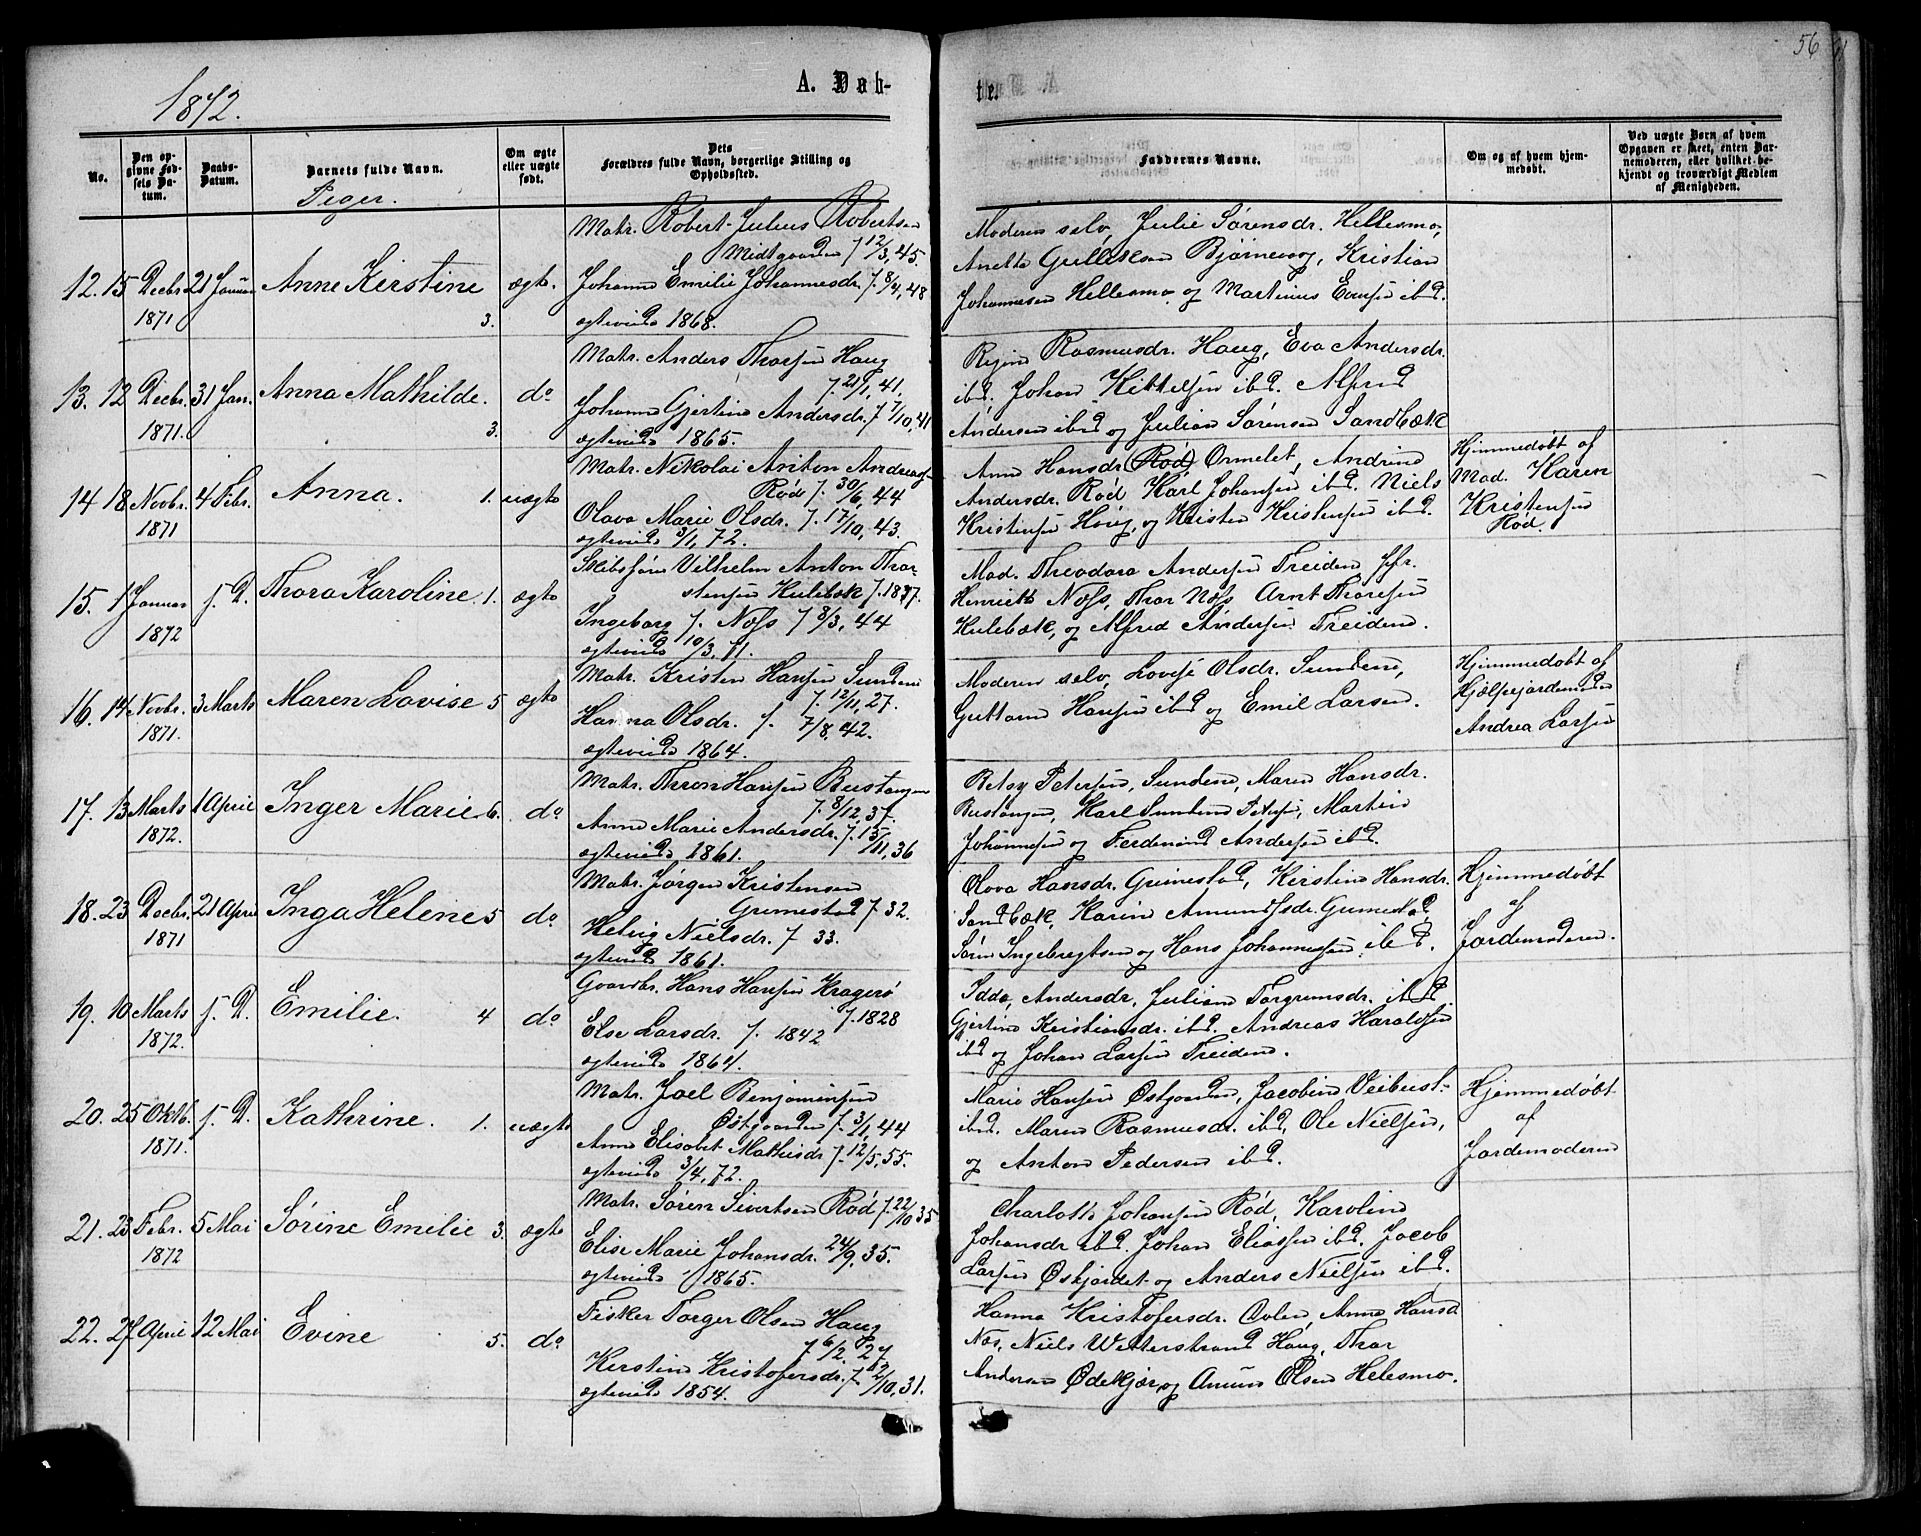 56
1872.
A. Døb-
te.
No.
Den opgivne Fødsels Datum.
Daabs-Datum.
Barnets fulde Navn.
Piger.
Om ægte eller uægte født.
Dets Forældres fulde Navn, borgerlige Stilling og Opholdssted.
Faddernes Navne.
Om og af hvem hjemmedøbt.
Ved uægte Børn af hvem Opgaven er skeet, enten Barnemoderen, eller hvilket bekjendt og troværdigt Medlem af Menigheden.
12. 15 Decbr. 1871 21 Januar Anne Kirstine 3. ægte.
Matr. Robert Julius Robertsen
Midtgaarden f. 12/3, 45.
Johanne Emilie Johannesdr. f. 8/4, 48
ægteviede 1868.
Moderen selv, Julie Sørensdr. Hellesmo,
Anette Gulliksen Bjørnevaag, Kristian
Johannesen Hellesmo og Martinus Evensen ibd.
13. 12 Decbr. 1871. 31 Jan. Anna Mathilde. 3. do
Matr. Anders Thorsen Haug
f. 21/1, 41,
Johanne Gjertine Andersdr. f. 7/10, 41
ægteviede 1865.
Rasmusdr. Haug, Eva Andersdr.
ibd. Johan Kittelsen ibd. Alfred
Andersen ibd og Julian Sørensen Sandbæk
14 18 Novbr. 1871 4 Febr. Anna. 1. uægte
Matr. Nikolai Anton Andreas-
Rød f. 30/6, 44
Olava Marie Olsdr. f. 17/10, 43.
ægteviede 3/1, 72.
Anne Hansdr. (Rød) Ormelet, Andrine
Andersdr. Rød Karl Johansen ibd. Niels
Kristensen Haug, og Kristen Kristensen ibd.
Hjemmedøbt af
Mad. Karen
Kristensen
Rød.
15. 1 Januar 1872 s. D. Thora Karoline 1. ægte
Skibsfører Vilhelm Anton Thor-
stensen Kulebæk f. 1837.
Ingeborg f. Næss f 8/3, 44
ægteviede 10/3, 71.
Mad. Theodora Andersen Treiden Jfr.
Henriette Næss, Thor Næss Arnt Thoresen
Kulebæk, og Alfred Andersen Treidene.
16. 14 Novbr. 1871. 3 Marts Maren Lovise 5 ægte
Matr. Kristen Hansen Sundene
f. 12/11, 27.
Hanna Olsdr. f. 7/8, 42.
ægteviede 1864.
Moderen selv, Lovise Olsdr. Sundene,
Guttorm Hansen ibd og Emil Larsen.
Hjemmedøbt af
Hjælpejordemoder
Andrea Larsen
17. 13 Marts 1872. 1 April Inger Marie 6. do.
Matr. Thron Hansen Bustangen
f. 8/12, 37.
Anne Marie Andersdr. f. 15/11, 36
ægteviede 1861.
Betsy Petersen, Sundene, Maren Hansdr.
Bustangen, Karl Sundene Petersen, Martin
Johannesen og Ferdinand Andersen ibd.
18. 23 Decbr. 1871 21 April Inga Helene 5 do
Matr. Jørgen Kristensen
Grimestad f. 32.
Helvig Nielsdr. f 33.
ægteviede 1861.
Olava Hansdr. Grimestad, Kirstine Hansdr.
Sandbæk, Karin Amundsdr. Grimestad,
Søren Ingebregtsen og Hans Johannesen ibd.
Hjemmedøbt
af
Jordemoderen.
19. 10 Marts 1872. s. D. Emilie. 4 do
Gaardbr. Hans Hansen Kragerø
f. 1828
Else Larsdr. f. 1842
ægteviede 1864.
Idda, Andersdr, Juliane Torgrimsdr. ibd
Gjertine Kristiansdr. ibd. Andreas Haraldsen
ibd og Johan Larsen Treidene.
20. 25 Oktb. 1871. s. D. Kathrine. 1. uægte
Matr. Joel Benjaminsen
Østgaarden f. 3/1, 44
Anne Elisabet Mathisdr f. 12/5, 55.
ægteviede 3/4, 72.
Marie Hansen Østgaarden, Jacobine Veibust
ibd. Maren Rasmusdr. ibd, Ole Nielsen,
og Anton Pedersen ibd.
Hjemmedøbt
af
Jordemoderen
21. 23 Febr. 1872 5 Mai Sørine Emilie 3. ægte
Matr. Søren Sivertsen Rød f. 22/10 35
Elise Marie Johansdr. 24/9, 35.
ægteviede 1865.
Charlotte Johansen Rød, Karoline
Johansdr ibd. Johan Eliassen ibd. Jacob
Larsen Øskjærdet og Anders Nielsen ibd.
22. 27 April 12 Mai Evine 5. do
Fisker Torger Olsen Haug
f 6/2 27
Kirstine Kristofersdr. f 12/10, 31.
ægteviede 1854.
Hanna Kristofersdr. Anne Hansd
Næs, Niels Wetterstrand Haug, Thor
Andersen Ødekjær, og Olsen Helesmo.